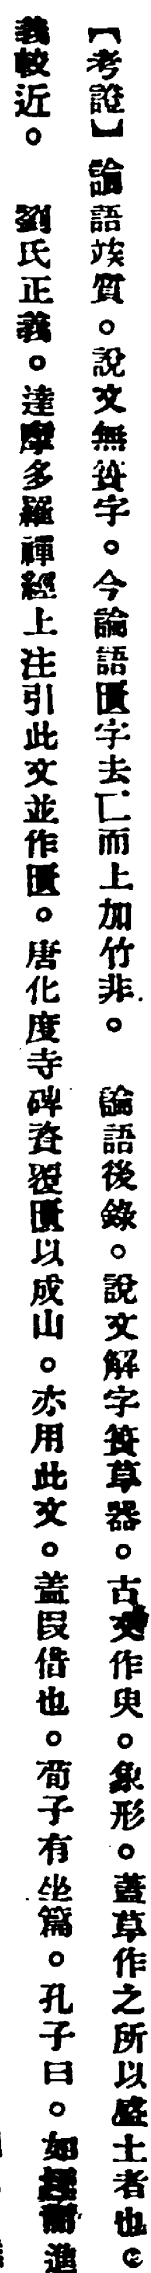 【考證】論語竢質。說文無簣字。今論語匱字去匚而上加竹非。　論語後錄。說文解字蕢草器。古文作臾。象形。蓋草作之所以盛土者也。
義較近。　劉氏正義。達摩多羅禪經上注引此文並作匱。唐化度寺碑資覆匱以成山。亦用此文。蓋叚借也。荀子有坐篇。孔子曰。如